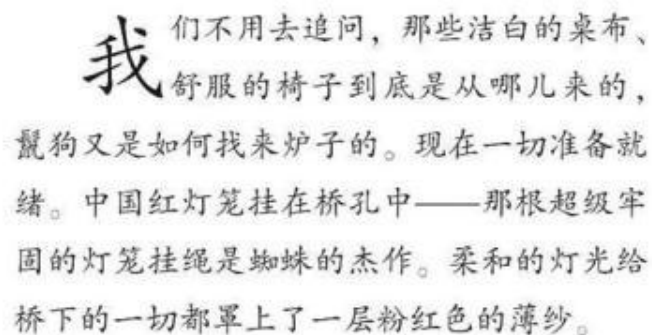 我们不用去追问，那些洁白的桌布、
舒服的椅子到底是从哪儿来的，
鬣狗又是如何找来炉子的。现在一切准备就
绪。中国红灯笼挂在桥孔中——那根超级牢
固的灯笼挂绳是蜘蛛的杰作。柔和的灯光给
桥下的一切都罩上了一层粉红色的薄纱。